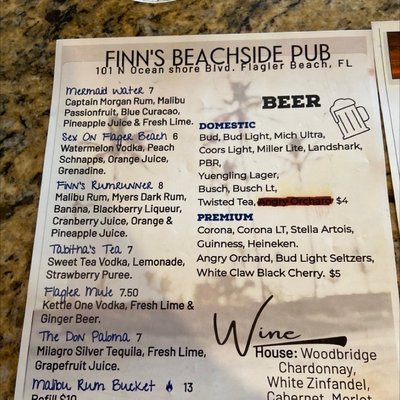 FINN'S BEACHSIDE PUB
101 N Ocean shore Blvd. Flagler Beach, FL
Mermaid Water 7
Captain Morgan Rum, Malibu
Passionfruit, Blue Curacao,
Pineapple Juice & Fresh Lime.
Sex On Flager Beach 6
Watermelon Vodka, Peach
Schnapps, Orange Juice,
Grenadine.
Finn's Rumrunner 8
Malibu Rum, Myers Dark Rum,
Banana, Blackberry Liqueur,
Cranberry Juice, Orange &
Pineapple Juice.
Tabitha's Tea 7
Sweet Tea Vodka, Lemonade,
Strawberry Puree.
Flagler Mule 7.50
Kettle One Vodka, Fresh Lime &
Ginger Beer.
The Don Paloma 7
Milagro Silver Tequila, Fresh Lime,
Grapefruit Juice.
Malibu Rum Bucket 13
Refill $10
BEER
DOMESTIC
Bud, Bud Light, Mich Ultra,
Coors Light, Miller Lite, Landshark,
PBR,
Yuengling Lager,
Busch, Busch Lt,
Twisted Tea, Angry Orchard $4
PREMIUM
Corona, Corona LT, Stella Artois,
Guinness, Heineken.
Angry Orchard, Bud Light Seltzers,
White Claw Black Cherry. $5
Wine
House: Woodbridge
Chardonnay,
White Zinfandel,
Cabernet, Merlot